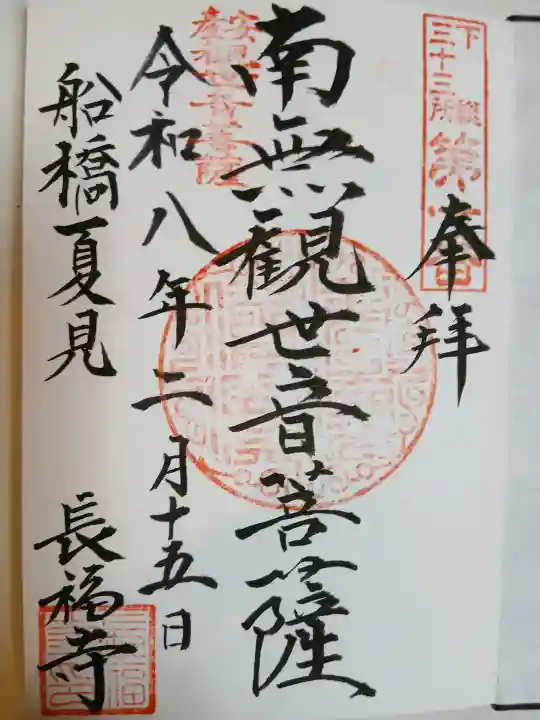 下総
三十三所
第
奉拝
南無観世音菩薩
安産
観世音菩薩
令和八年二月十五日
船橋夏見 長福寺